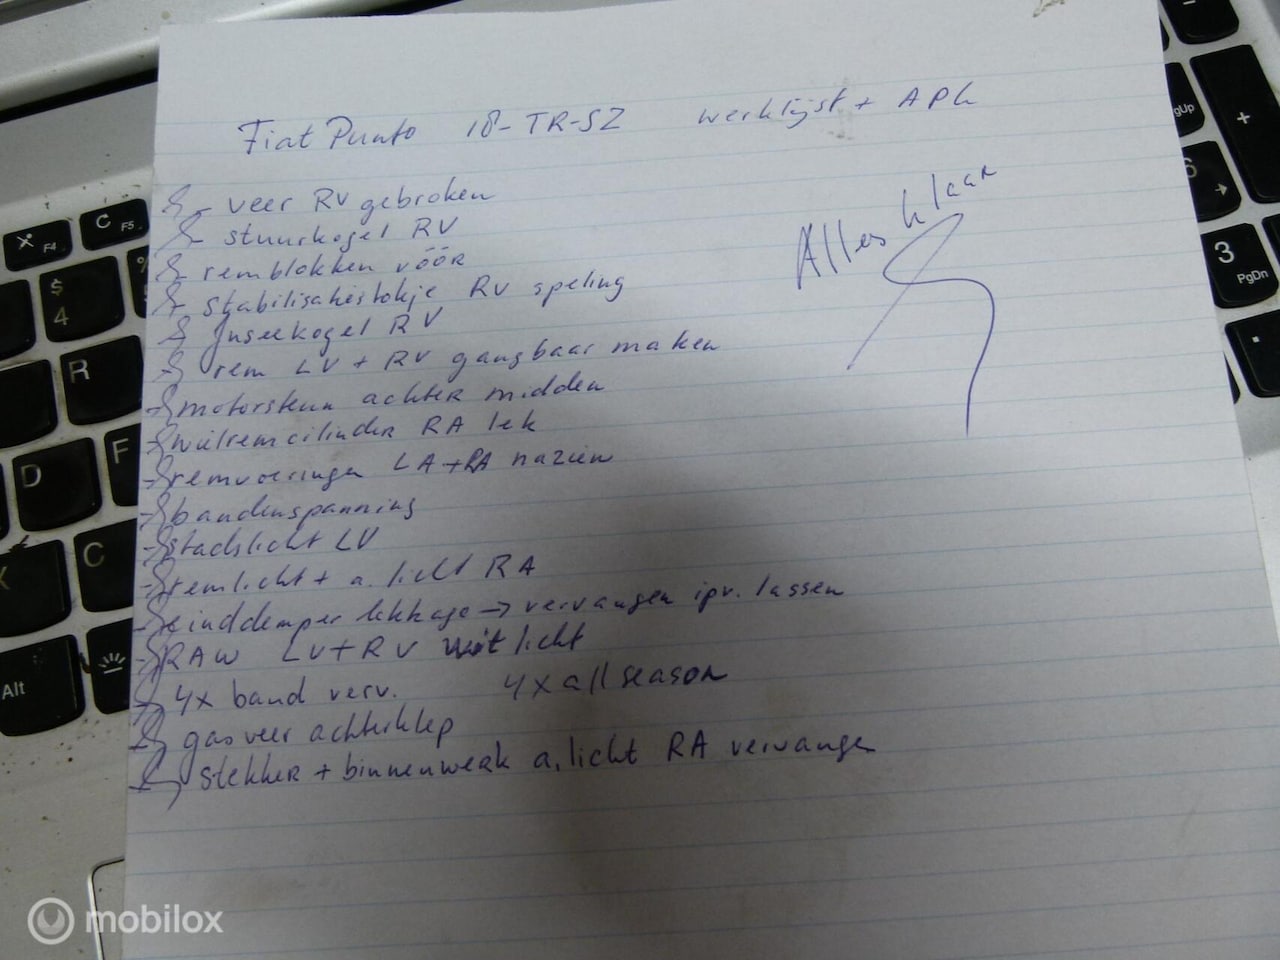 Fiat Punto 18-TR-SZ werklijst + APK
Alles klaar
- veer RV gebroken
- stuurkogel RV
- remblokken vóór
- stabilisatiestokje RV speling
- fuseekogel RV
- rem LV + RV gangbaar maken
- motorsteun achter midden
- wielremcilinder RA lek
- remvoeringen LA + RA nazien
- bandenspanning
- stadslicht LV
- remlicht + a. licht RA
- einddemper lekkage → vervangen ipv. lassen
- RAW LV + RV licht
- 4x band verv. 4x all season
- gasveer achterklep
- stekker + binnenwerk a. licht RA vervangen
X F4
C F5
$ 4
%
R
D
F
X
C
Alt
PgUp
+
6 →
3 PgDn
.
-
mobilox